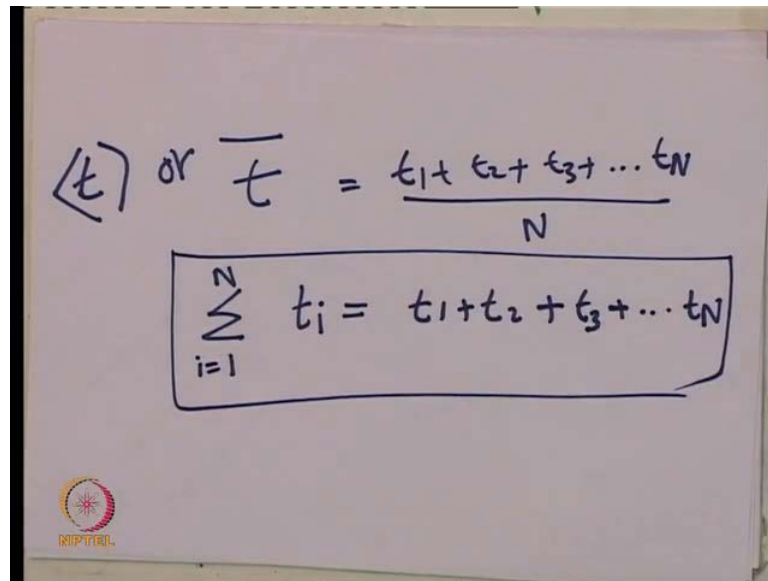 ⟨t⟩ or t̄ = (t1 + t2 + t3 + ... tN) / N
N
∑ ti = t1 + t2 + t3 + ... tN
i=1
NPTEL